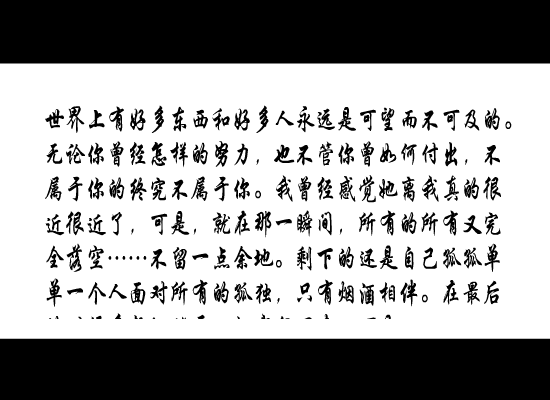 世界上有好多东西和好多人永远是可望而不可及的。
无论你曾经怎样的努力，也不管你曾如何付出，不
属于你的终究不属于你。我曾经感觉她离我真的很
近很近了，可是，就在那一瞬间，所有的所有又完
全落空……不留一点余地。剩下的还是自己孤孤单
单一个人面对所有的孤独，只有烟酒相伴。在最后